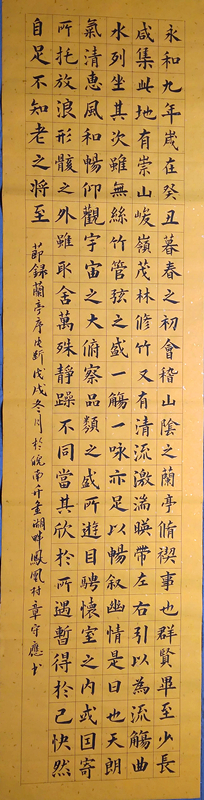 永和九年歲在癸丑暮春之初會稽山陰之蘭亭脩禊事也群賢畢至少長
咸集此地有崇山峻嶺茂林修竹又有清流激湍暎帶左右引以為流觴曲
水列坐其次雖無絲竹管弦之盛一觴一咏亦足以暢叙幽情是日也天朗
氣清惠風和暢仰觀宇宙之大俯察品類之盛所遊目騁懷室之內或因寄
所托放浪形骸之外雖取舍萬殊靜躁不同當其欣於所遇暫得於己快然
自足不知老之將至
節録蘭亭序片斷戊戌冬月於皖南升金湖畔鳳凰村章守應书